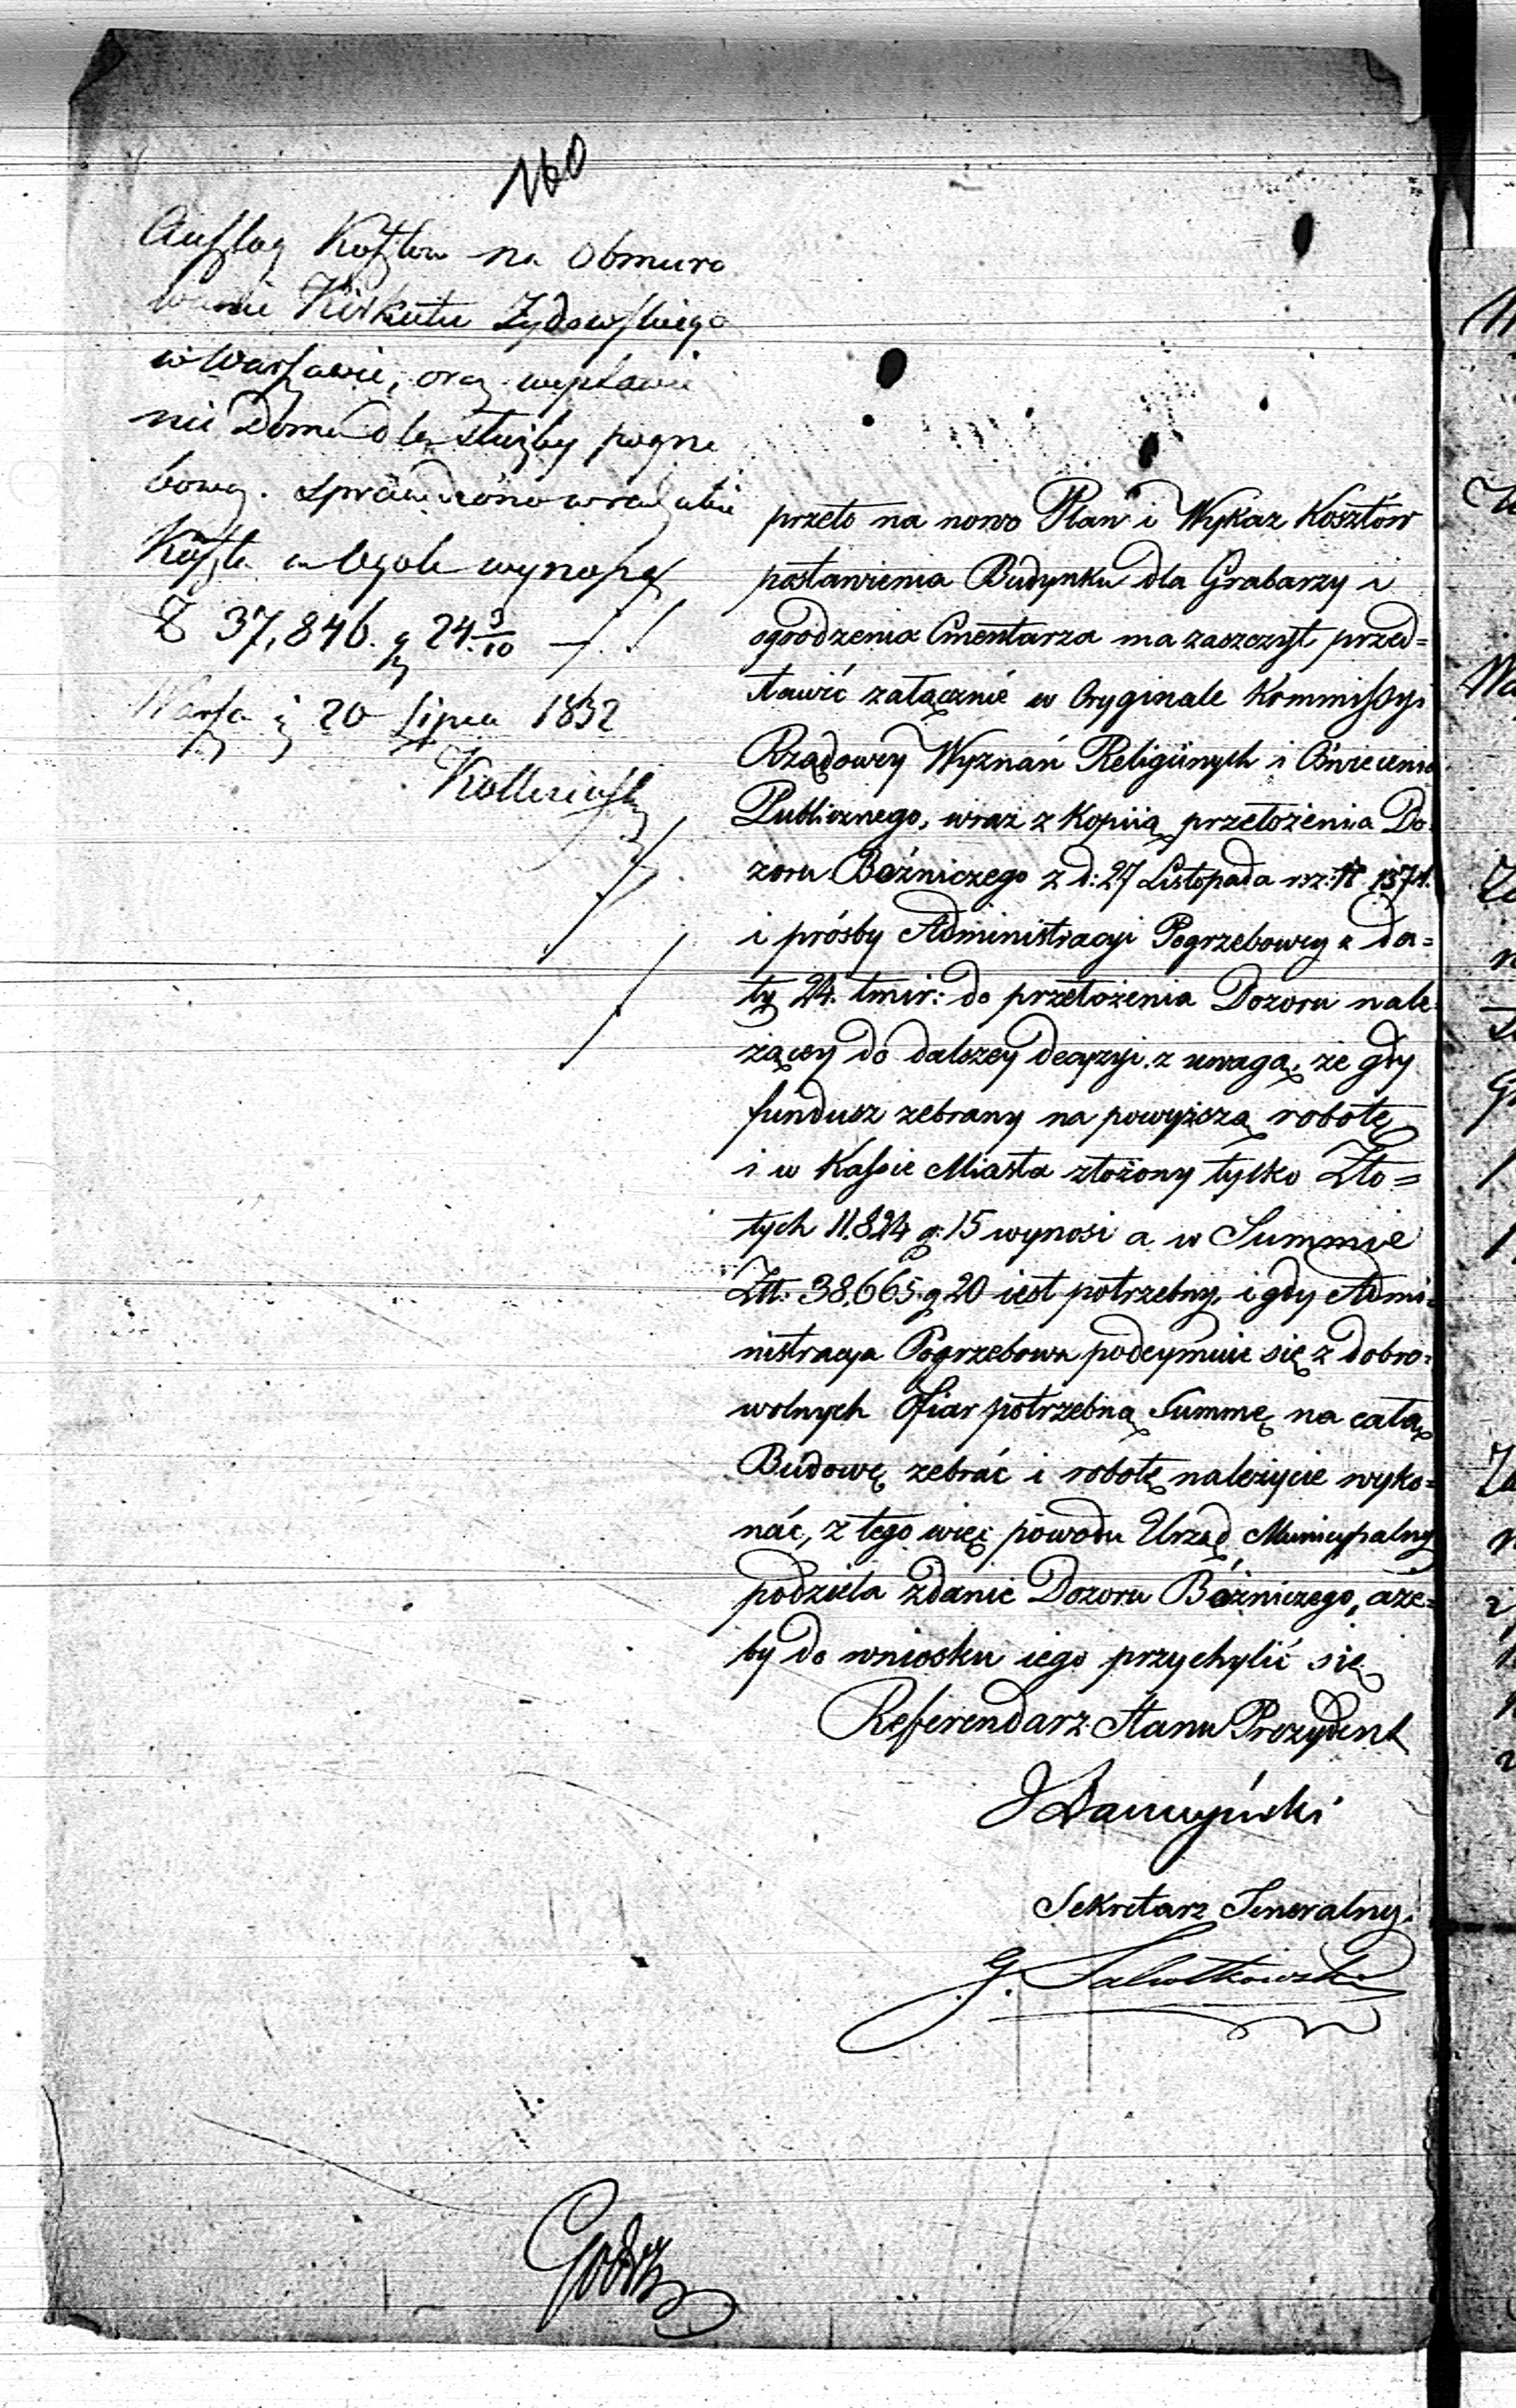 160
Anszlag Kosztow na Obmuro
wanie Kirkutu Zydowskiego
w Warszawie, oraz wystawie
nie Domu dla służby pogrze
bowey. Sprawdzono w rezultacie
Koszta w Ogole wynoszą
37,846. g 24 9/10
Warsza 20 Lipca 1832
przeto na nowo Plan i Wykaz Kosztów
postawienia Budynku dla Grabarzy i
ogrodzenia Cmentarza ma zaszczyt przed=
stawić załącznie w Oryginale Kommissyi
Rządowey Wyznań Religiinych i Oświecenia
Publicznego, wraz z Kopiią przełożenia Do=
zoru Bóźniczego z d: 27 Listopada r: z: N 1371.
i prośby Administracyi Pogrzebowey z da=
ty 24. tmir: do przełożenia Dozoru nale=
żącey do dalszey decyzyi z uwagą, że gdy
fundusz zebrany na powyższą robotę
i w Kassie Miasta złożony tylko Zło=
tych 11.824 g. 15 wynosi a w Summie
Złt: 38,665 g 20 iest potrzebny, i gdy Admi=
nistracya Pogrzebowa podeymuie się z dobro=
wolnych Ofiar potrzebną Summę na całą
Budowę zebrać i robotę należycie wyko=
nać, z tego więc powodu Urząd Municypalny
podziela zdanie Dozoru Bóźniczego, aże=
by do wniosku iego przychylić się
Referendarz Stanu Prezydent
Sekretarz Jeneralny.